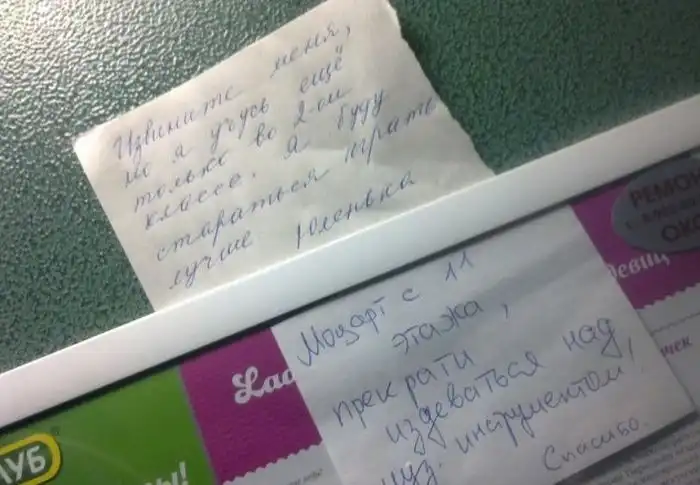 Извините меня,
но я учусь ещё
только во 2-ом
классе. Я буду
стараться играть
лучше Юленька
Моцарт с 11
этажа,
прекрати
издеваться над
муз. инструментом,
Спасибо.
РЕМОН
ОКО
девиц
Lad
ЛУБ
ы!